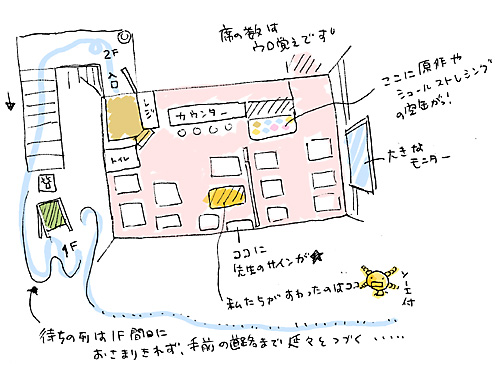 席の数は
ウロ覚えです!
2F
入口
レジ
カウンター
トイレ
ここに原作や
シュールストレミング
の空缶が!
大きな
モニター
1F
ココに
先生のサインが★
私たちがすわったのはココ
ソーエ付
待ちの列は1F間口に
おさまりきれず、手前の道路まで延々とつづく・・・・・